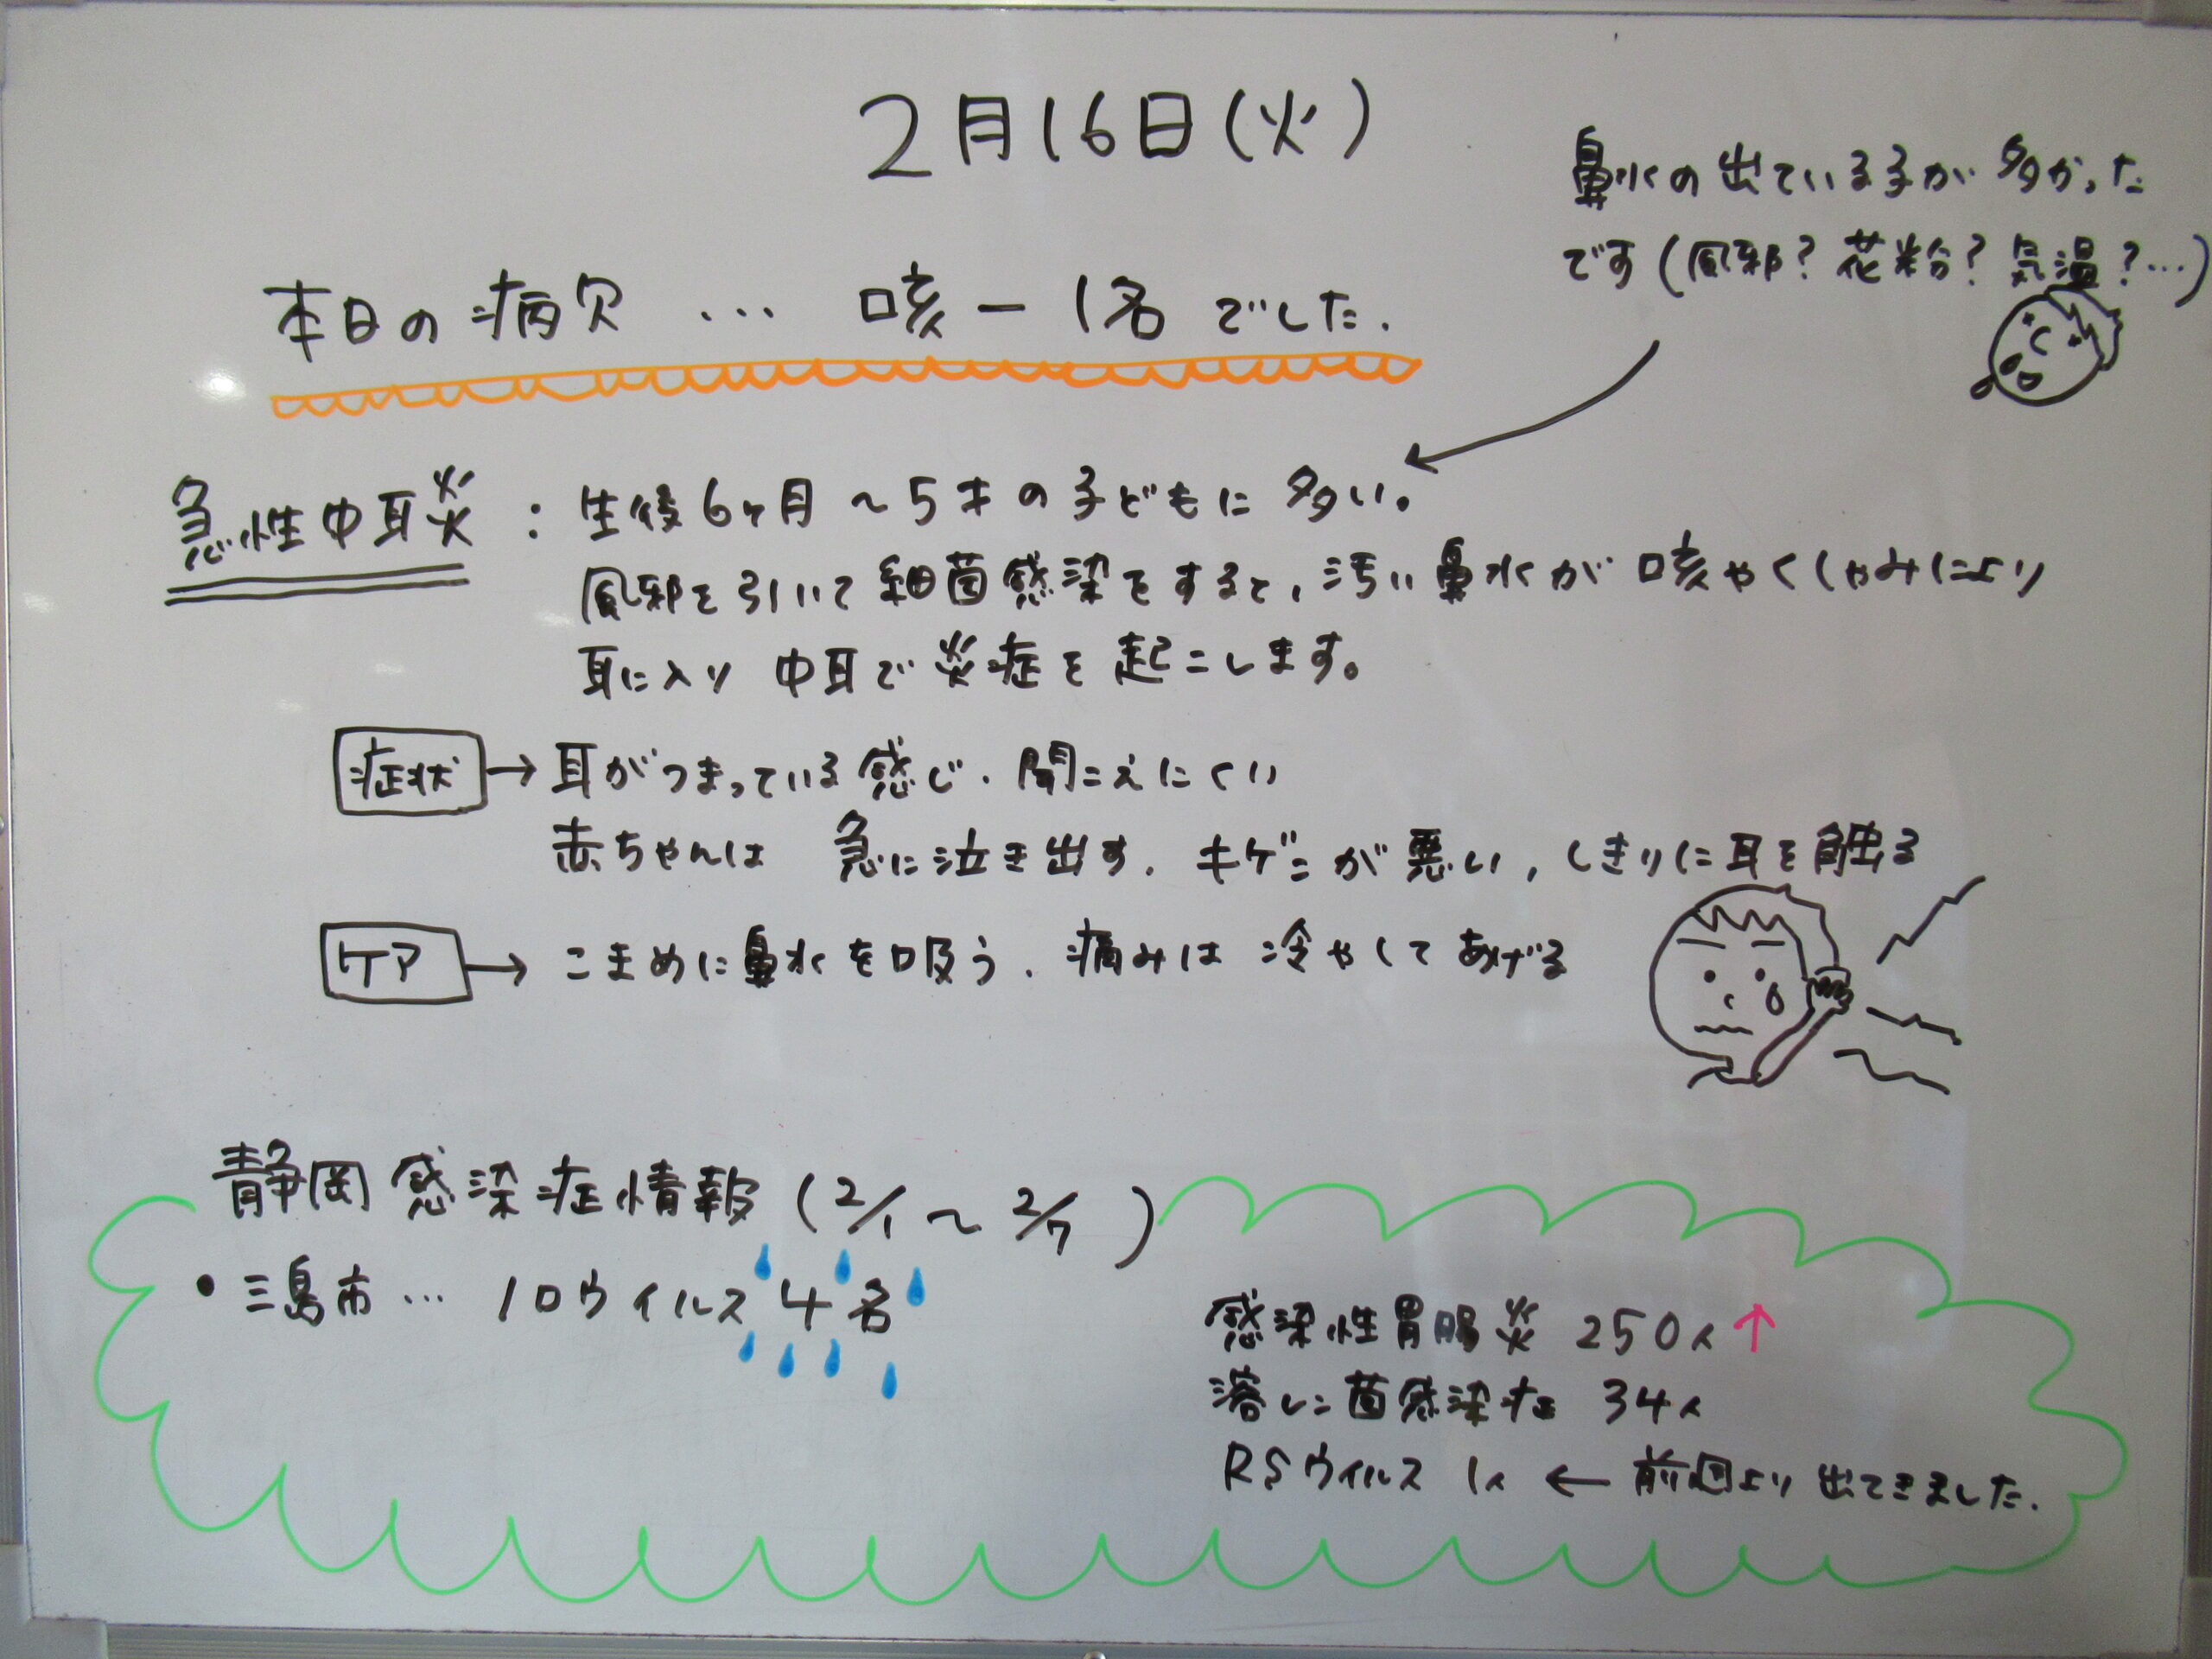 2月16日(火)
鼻水の出ている子が多かった
です(風邪?花粉?気温?…)
本日の病欠 … 咳ー1名でした.
急性中耳炎 : 生後6ヶ月~5才の子どもに多い。
風邪を引いて細菌感染をすると,汚い鼻水が咳やくしゃみにより
耳に入り中耳で炎症を起こします。
症状→耳がつまっている感じ.聞こえにくい
赤ちゃんは 急に泣き出す.キゲンが悪い,しきりに耳を触る
ケア→こまめに鼻水を吸う.痛みは冷やしてあげる
静岡感染症情報(2/1~2/7)
・三島市… ノロウイルス4名
感染性胃腸炎 250人↑
溶レン菌感染症 34人
RSウイルス 1人 ← 前回より出てきました.